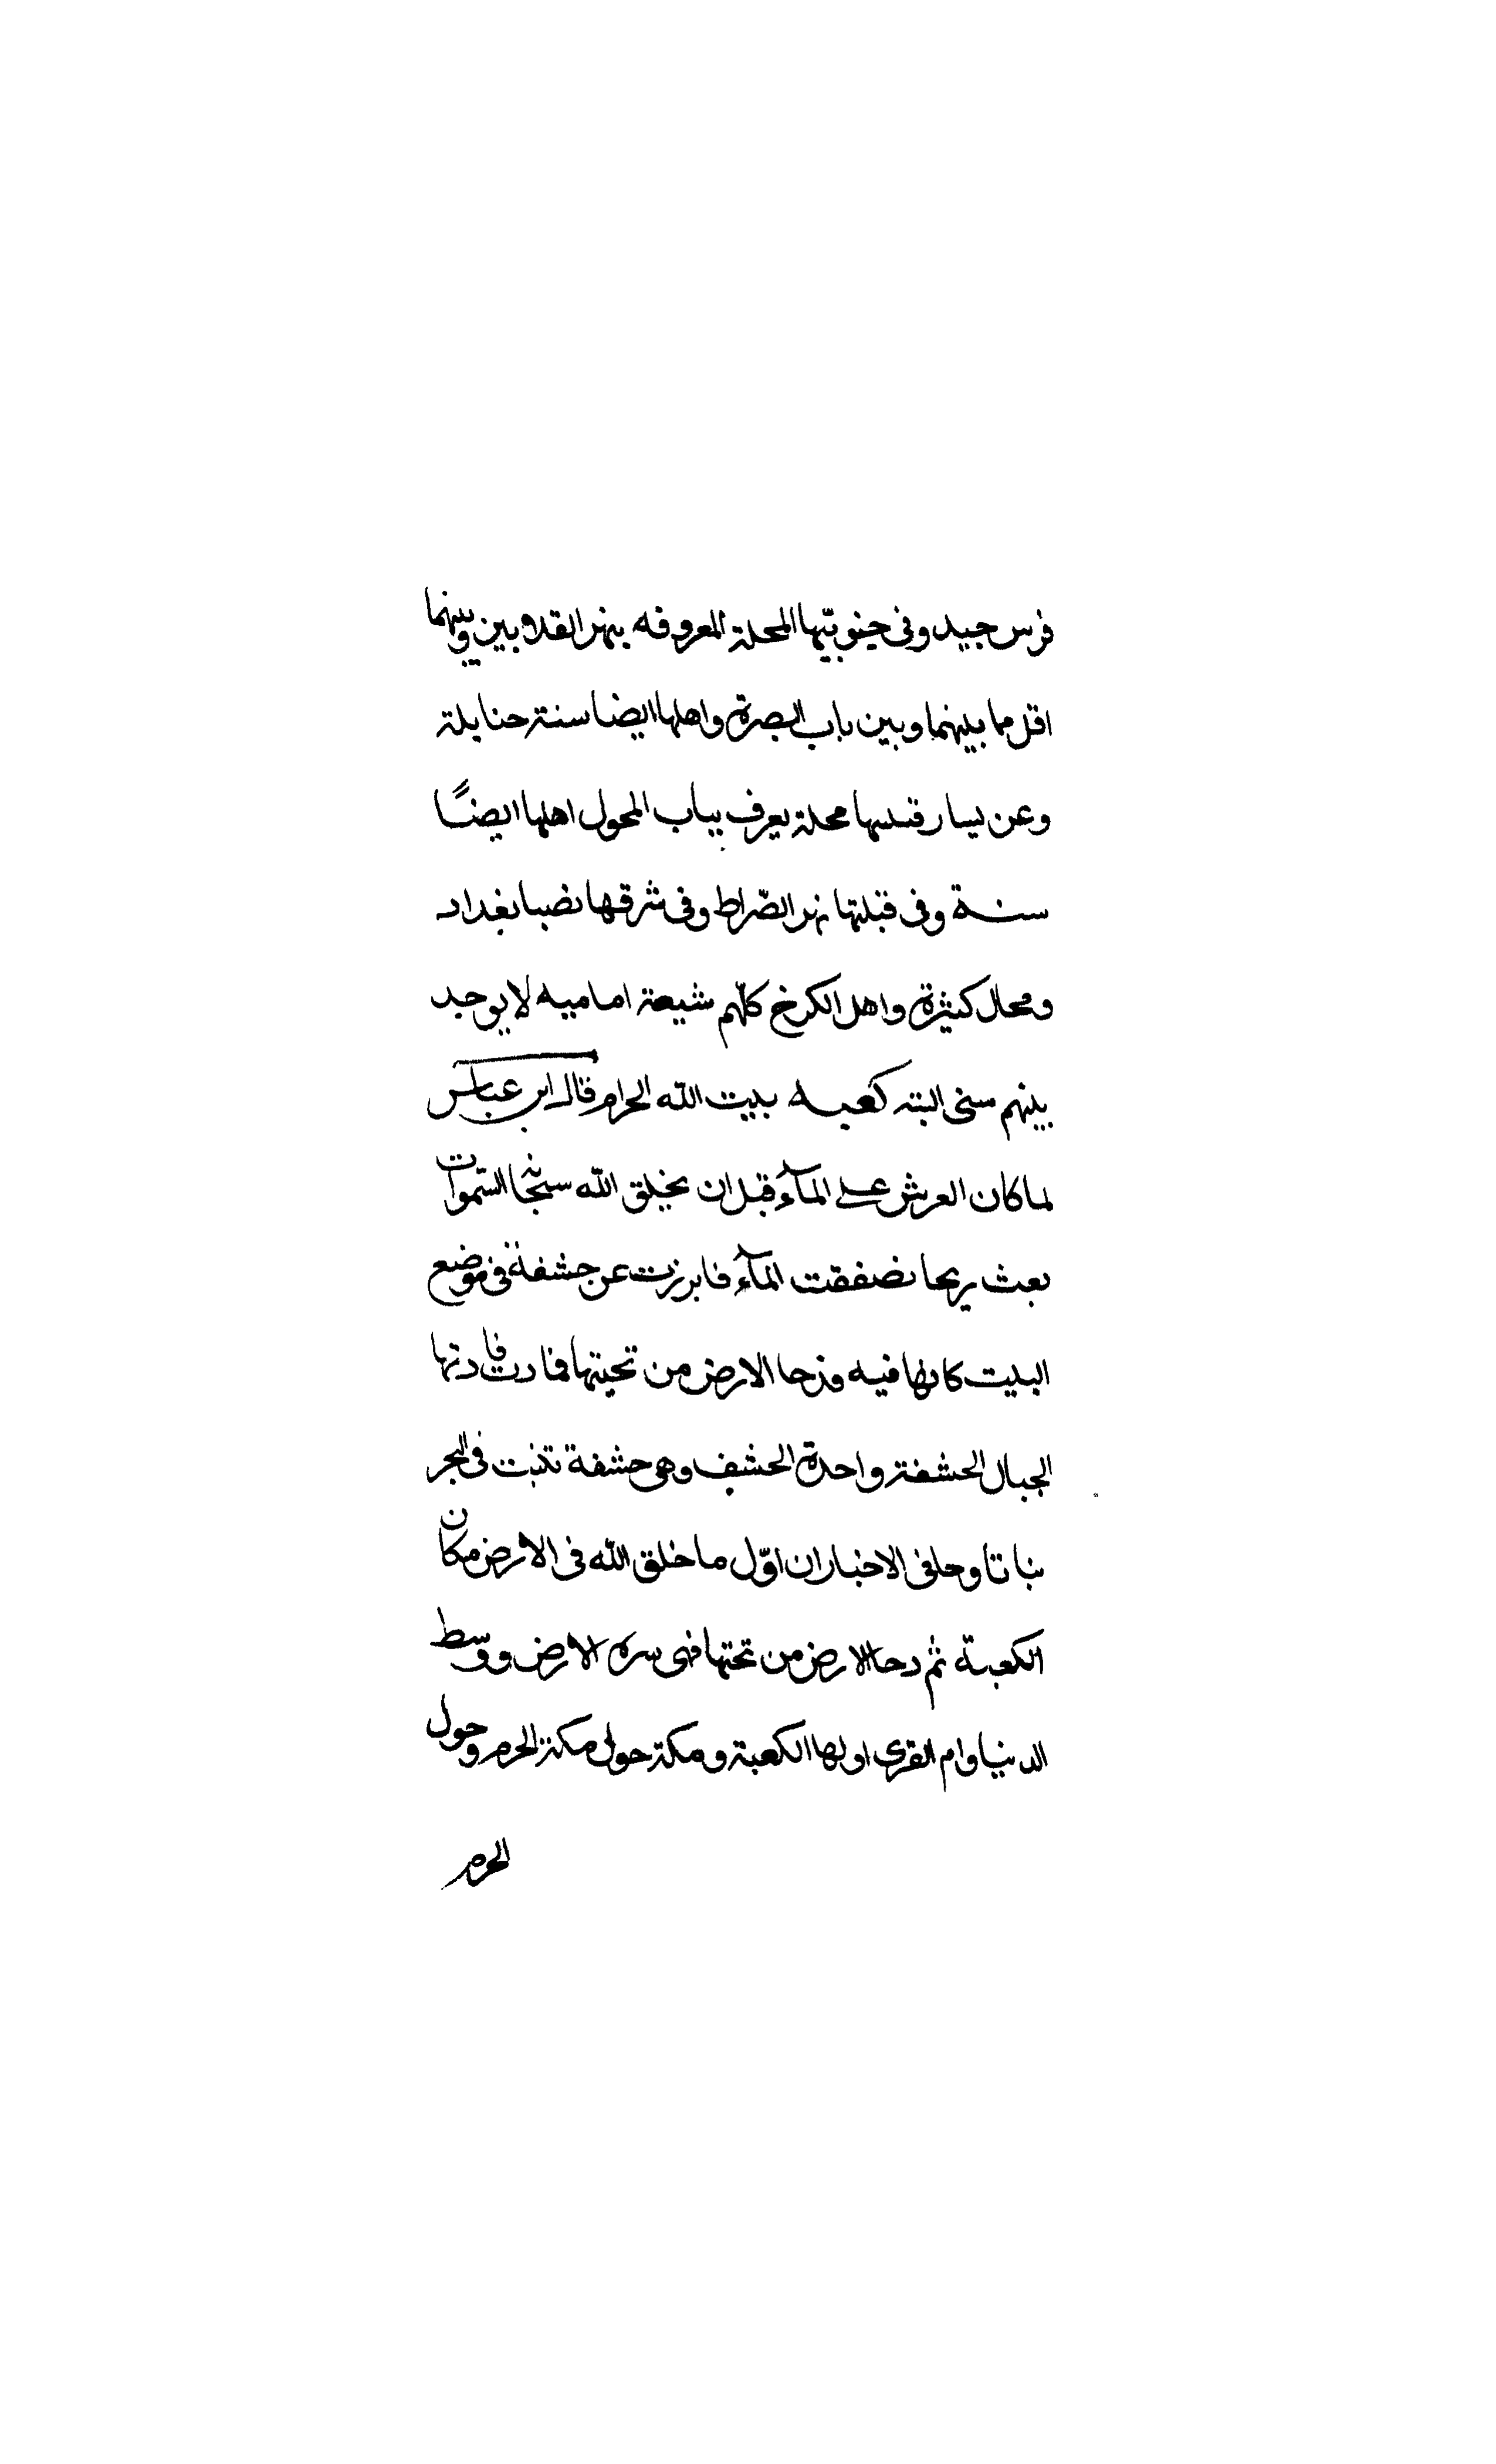 فرس جيد وفى جنوبيّها المحلة المعروفه بنهر القلابين وبينهما
اقل مما بينهما وبين باب البصرة واهلها ايضا سنة حنابلة
وعن يسار قبلتها محلة يعرف بباب المحول اهلها ايضًا
سنة وفى قبلتها نهر الصّراط وفى شرقها نصبا بغداد
ومحال كثيرة واهل الكرخ كلّهم شيعة اماميه لا يوجد
بينهم سنى البته كعبه بيت الله الحرام قال ابن عباس
لما كان العرش على المآء قبل ان يخلق الله سبحانه السّموات
بعث ريحا نصفقت المآء فابرزت عن حشفة فى موضع
البيت كانها فيه فدحا الارض من تحتها فمادت فاودتها
الجبال الحشفة واحدة الحشف وهى حشفة تنبت فى البحر
نباتا وجا فى الاخبار ان اوّل ما خلق الله فى الارض مكان
الكعبة ثم دحا الارض من تحتها فهى سره الارض ووسط
الدنيا وام القرى اولها الكعبة ومكة حول مكة الحرم وحول
الحرم